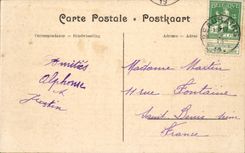 19
Carte Postale - Postkaart
Correspondance - Mededeeling
Adresse - Adres
BELGIQUE
Amitiés
Alphonse
Justin
Madame Martin
11 rue Fontaine
Saint Denis sur Seine
France